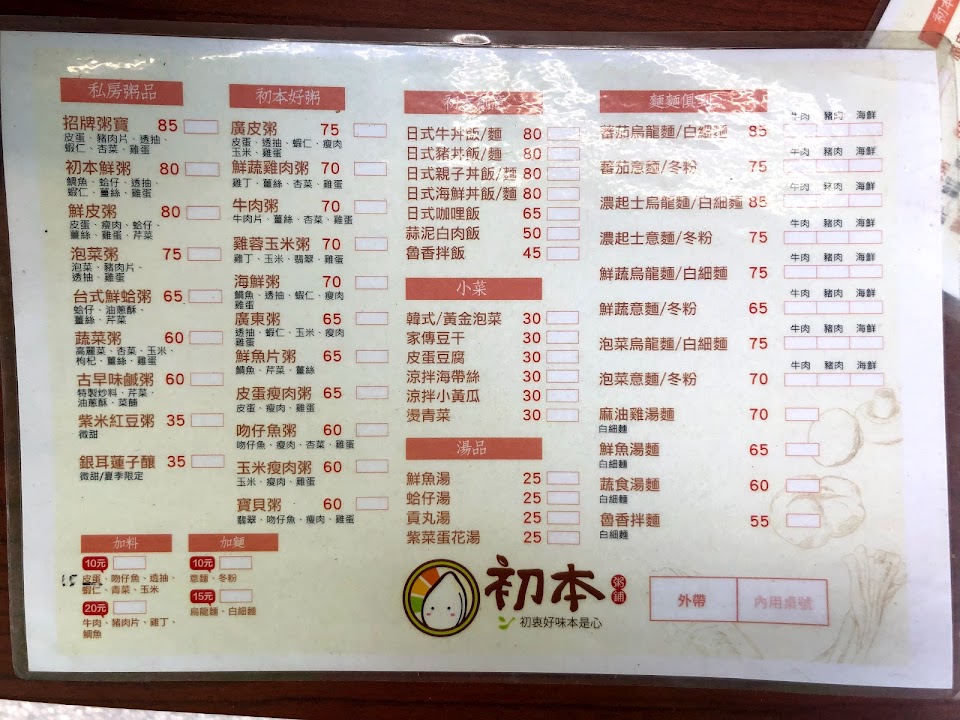 私房粥品
招牌粥寶 85
皮蛋、豬肉片、透抽、
蝦仁、杏菜、雞蛋
初本鮮粥 80
鯛魚、蛤仔、透抽、
蝦仁、薑絲、雞蛋
鮮皮粥 80
皮蛋、瘦肉、蛤仔、
薑絲、雞蛋、芹菜
泡菜粥 75
泡菜、豬肉片、
透抽、雞蛋
台式鮮蛤粥 65
蛤仔、油蔥酥、
薑絲、芹菜
蔬菜粥 60
高麗菜、杏菜、玉米、
枸杞、薑絲、雞蛋
古早味鹹粥 60
特製炒料、芹菜、
油蔥酥、菜脯
紫米紅豆粥 35
微甜
銀耳蓮子釀 35
微甜/夏季限定
加料
10元
15
皮蛋、吻仔魚、透抽、
蝦仁、青菜、玉米
20元
牛肉、豬肉片、雞丁、
鯛魚
初本好粥
廣皮粥 75
皮蛋、透抽、蝦仁、瘦肉
玉米、雞蛋
鮮蔬雞肉粥 70
雞丁、薑絲、杏菜、雞蛋
牛肉粥 70
牛肉片、薑絲、杏菜、雞蛋
雞蓉玉米粥 70
雞丁、玉米、翡翠、雞蛋
海鮮粥 70
鯛魚、透抽、蝦仁、瘦肉
雞蛋
廣東粥 65
透抽、蝦仁、玉米、瘦肉
雞蛋
鮮魚片粥 65
鯛魚、芹菜、薑絲
皮蛋瘦肉粥 65
皮蛋、瘦肉、雞蛋
吻仔魚粥 60
吻仔魚、瘦肉、杏菜、雞蛋
玉米瘦肉粥 60
玉米、瘦肉、雞蛋
寶貝粥 60
翡翠、吻仔魚、瘦肉、雞蛋
加麵
10元
意麵、冬粉
15元
烏龍麵、白細麵
日式牛丼飯/麵 80
日式豬丼飯/麵 80
日式親子丼飯/麵 80
日式海鮮丼飯/麵 80
日式咖哩飯 65
蒜泥白肉飯 50
魯香拌飯 45
小菜
韓式/黃金泡菜 30
家傳豆干 30
皮蛋豆腐 30
涼拌海帶絲 30
涼拌小黃瓜 30
燙青菜 30
湯品
鮮魚湯 25
蛤仔湯 25
貢丸湯 25
紫菜蛋花湯 25
初本 粥鋪
初衷好味本是心
麵麵俱
牛肉 豬肉 海鮮
蕃茄烏龍麵/白細麵 85
牛肉 豬肉 海鮮
蕃茄意麵/冬粉 75
牛肉 豬肉 海鮮
濃起士烏龍麵/白細麵 85
牛肉 豬肉 海鮮
濃起士意麵/冬粉 75
牛肉 豬肉 海鮮
鮮蔬烏龍麵/白細麵 75
牛肉 豬肉 海鮮
鮮蔬意麵/冬粉 65
牛肉 豬肉 海鮮
泡菜烏龍麵/白細麵 75
牛肉 豬肉 海鮮
泡菜意麵/冬粉 70
麻油雞湯麵 70
白細麵
鮮魚湯麵 65
白細麵
蔬食湯麵 60
白細麵
魯香拌麵 55
白細麵
外帶
內用桌號
初本